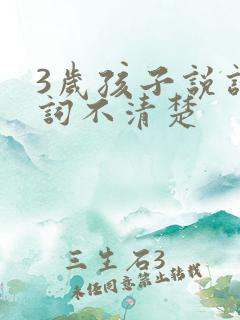 3歲孩子說
詞不清楚
三生石3
未经同意禁止转载